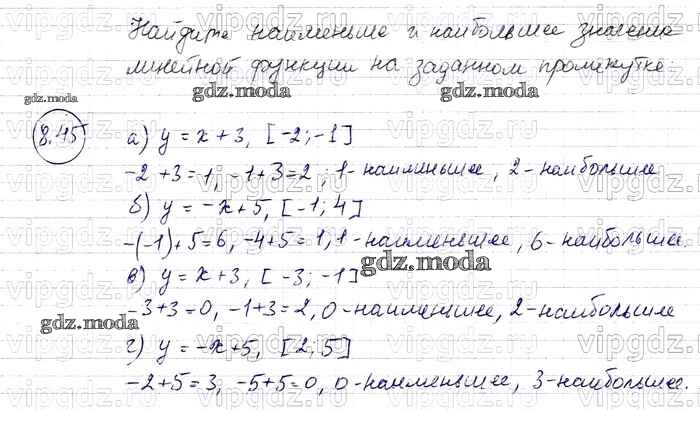 Найдите наименьшее и наибольшее значение
линейной функции на заданном промежутке:
gdz.moda
gdz.moda
8.45 а) y = x + 3, [-2; -1]
-2 + 3 = 1, -1 + 3 = 2; 1 - наименьшее, 2 - наибольшее
б) y = -x + 5, [-1; 4]
-(-1) + 5 = 6, -4 + 5 = 1, 1 - наименьшее, 6 - наибольшее.
gdz.moda
в) y = x + 3, [-3; -1]
-3 + 3 = 0, -1 + 3 = 2, 0 - наименьшее, 2 - наибольшее
gdz.moda
г) y = -x + 5, [2; 5]
-2 + 5 = 3, -5 + 5 = 0, 0 - наименьшее, 3 - наибольшее.